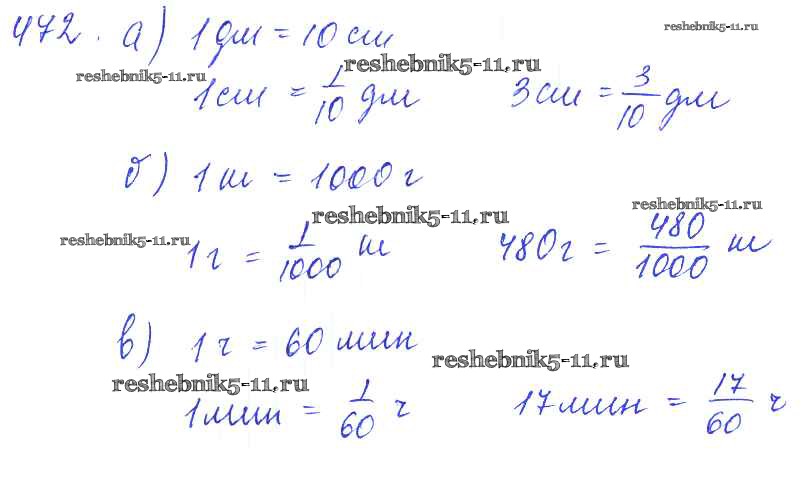 472. а) 1 дм = 10 см
reshebnik5-11.ru
reshebnik5-11.ru
reshebnik5-11.ru
1 см = 1/10 дм 3 см = 3/10 дм
б) 1 т = 1000 г
reshebnik5-11.ru
reshebnik5-11.ru
reshebnik5-11.ru
1 г = 1/1000 т 480 г = 480/1000 т
в) 1 ч = 60 мин
reshebnik5-11.ru
reshebnik5-11.ru
1 мин = 1/60 ч 17 мин = 17/60 ч